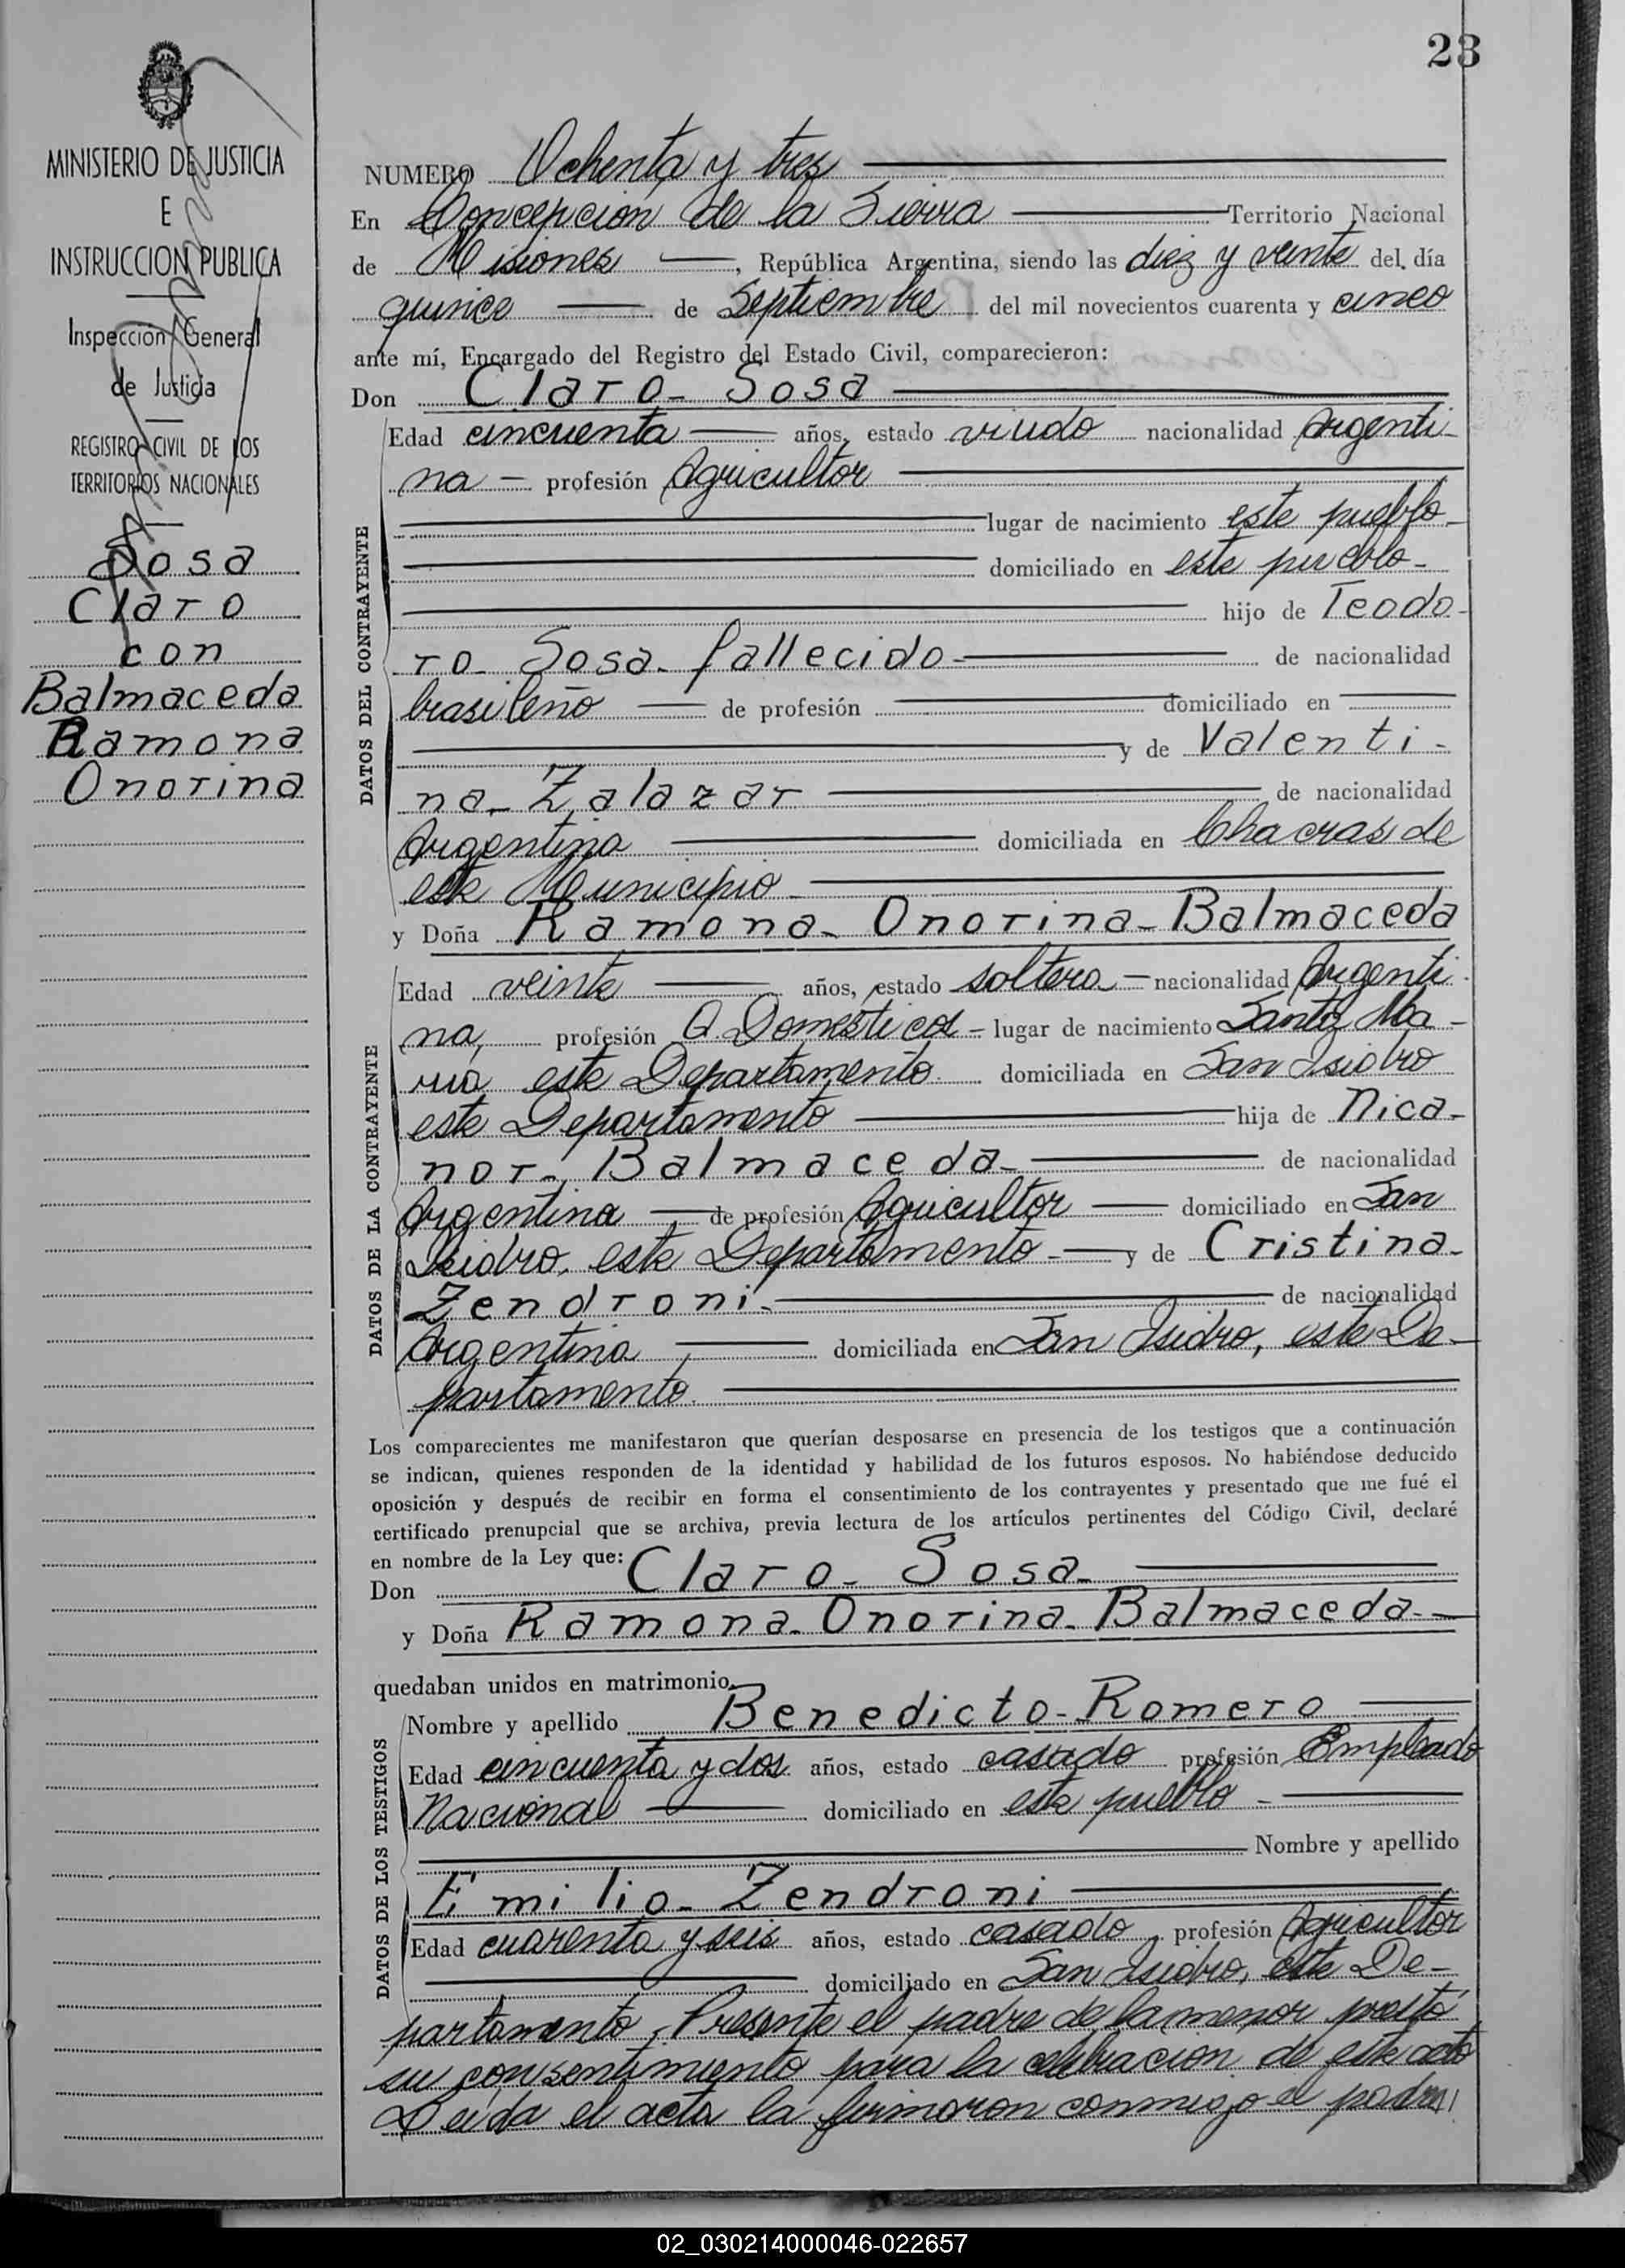 23
MINISTERIO DE JUSTICIA
E
INSTRUCCION PUBLICA
Inspección General
de Justicia
REGISTRO CIVIL DE LOS
TERRITORIOS NACIONALES
Sosa
Claro
con
Balmaceda
Ramona
Onorina
NUMERO Ochenta y tres
En Concepción de la Sierra Territorio Nacional
de Misiones, República Argentina, siendo las diez y veinte del día
quince de Septiembre del mil novecientos cuarenta y cinco
ante mí, Encargado del Registro del Estado Civil, comparecieron:
Don Claro Sosa
DATOS DEL CONTRAYENTE
Edad cincuenta años, estado viudo nacionalidad Argenti-
na - profesión Agricultor
lugar de nacimiento este pueblo
domiciliado en este pueblo
hijo de Teodo-
ro Sosa fallecido de nacionalidad
brasileño de profesión domiciliado en
y de Valenti-
na Zalazar de nacionalidad
Argentina domiciliada en Chacras de
este Municipio
y Doña Ramona Onorina Balmaceda
DATOS DE LA CONTRAYENTE
Edad veinte años, estado soltera nacionalidad Argenti-
na, profesión Q. Domésticos lugar de nacimiento Santa Ma-
ria este Departamento domiciliada en San Isidro
este Departamento hija de Nica-
nor Balmaceda de nacionalidad
Argentina de profesión Agricultor domiciliado en San
Isidro, este Departamento y de Cristina
Zendroni de nacionalidad
Argentina, domiciliada en San Isidro, este De-
partamento.
Los comparecientes me manifestaron que querían desposarse en presencia de los testigos que a continuación
se indican, quienes responden de la identidad y habilidad de los futuros esposos. No habiéndose deducido
oposición y después de recibir en forma el consentimiento de los contrayentes y presentado que me fué el
certificado prenupcial que se archiva, previa lectura de los artículos pertinentes del Código Civil, declaré
en nombre de la Ley que:
Don Claro Sosa
y Doña Ramona Onorina Balmaceda
quedaban unidos en matrimonio.
DATOS DE LOS TESTIGOS
Nombre y apellido Benedicto Romero
Edad cincuenta y dos años, estado casado profesión Empleado
Nacional domiciliado en este pueblo
Nombre y apellido
Emilio Zendroni
Edad cuarenta y seis años, estado casado, profesión Agricultor
domiciliado en San Isidro, este De-
partamento. Presente el padre de la menor prestó
su consentimiento para la celebración de este acto
Leída el acta la firmaron conmigo el padre,
02_030214000046-022657